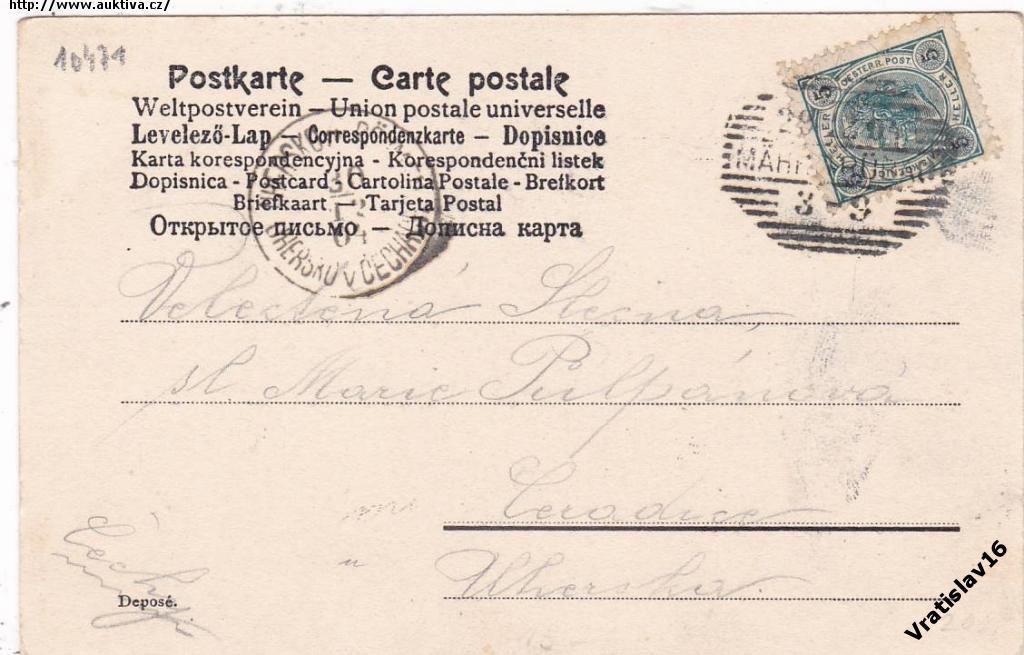 http://www.auktiva.cz/
10471
Postkarte — Carte postale
Weltpostverein – Union postale universelle
Levelező-Lap – Correspondenzkarte – Dopisnice
Karta korespondencyjna - Korespondenčni listek
Dopisnica - Postcard - Cartolina Postale - Brefkort
Briefkaart — Tarjeta Postal
Открытое письмо — Дописна карта
OESTERR. POST
5 HELLER 5
MÄHR.
3-9
30
UHERSKO V ČECHÁCH
Velectená Slečna,
sl Marie Půlpánová
u
Uherska
Čechy
Deposé.
Vratislav16